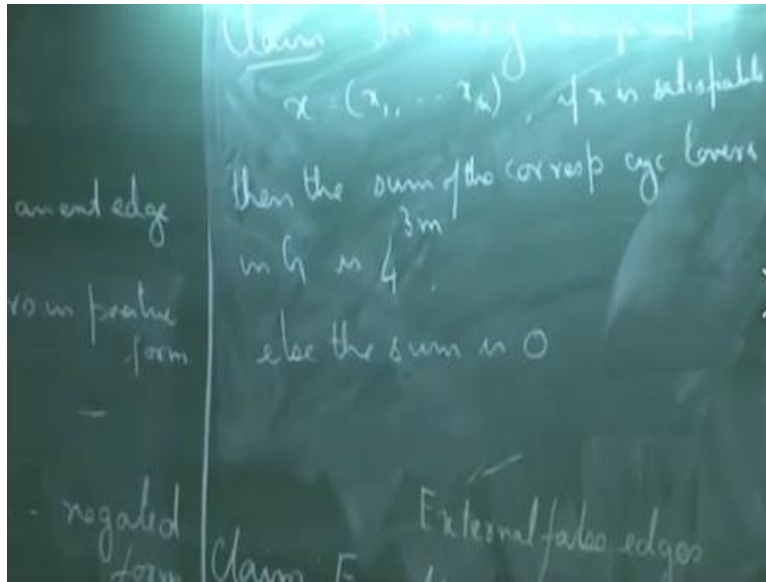 an ent edge
in positive
form
- negated
form
Claim
x = (x₁, ... xₙ), if x is satisfiabl
then the sum of the corresp cyc covers
in G is 4^{3m}.
else the sum is 0
External false edges
Claim E